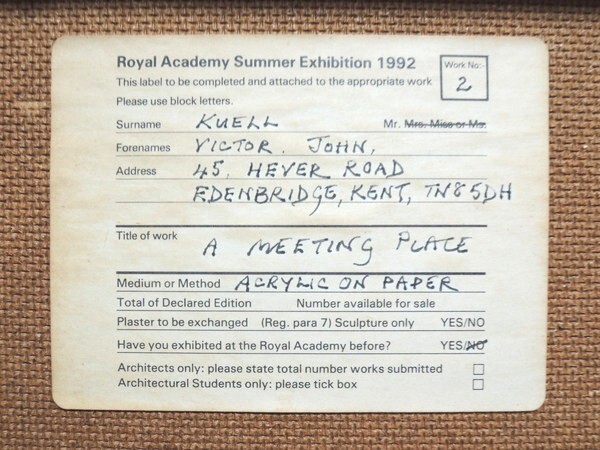 Royal Academy Summer Exhibition 1992
Work No:- 2
This label to be completed and attached to the appropriate work
Please use block letters.
Surname KUELL Mr. Mrs. Miss or Ms.
Forenames VICTOR. JOHN,
Address 45, HEVER ROAD
EDENBRIDGE, KENT, TN8 5DH
Title of work A MEETING PLACE
Medium or Method ACRYLIC ON PAPER
Total of Declared Edition Number available for sale
Plaster to be exchanged (Reg. para 7) Sculpture only YES/NO
Have you exhibited at the Royal Academy before? YES/NO
Architects only: please state total number works submitted
Architectural Students only: please tick box